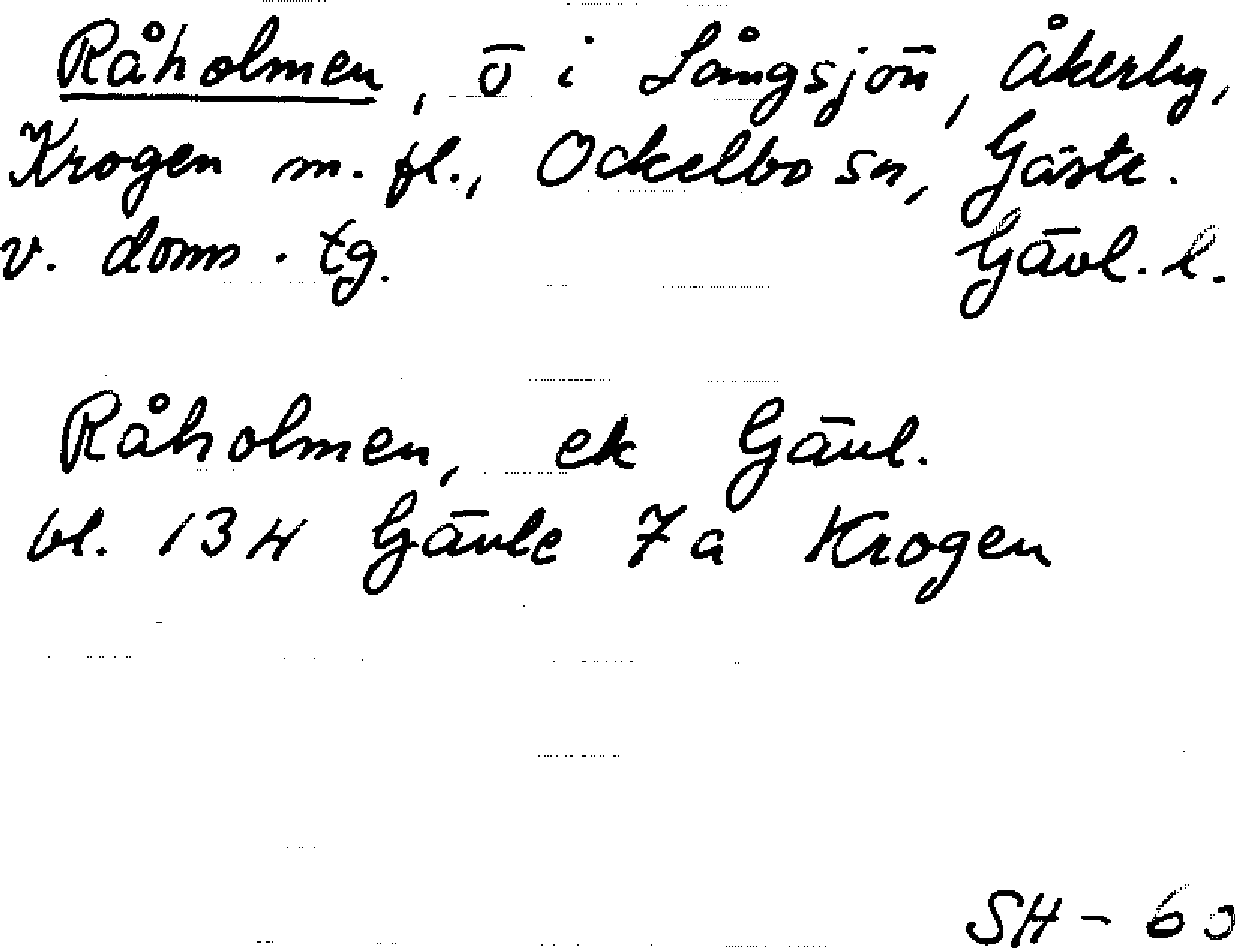 Råholmen, ö i Långsjön, Åkerby,
Krogen m. fl., Ockelbo sn, Gästr.
v. doms. tg. Gävl. l.
Råholmen, ek Gävl.
bl. 134 Gävle 7a Krogen
SH - 60